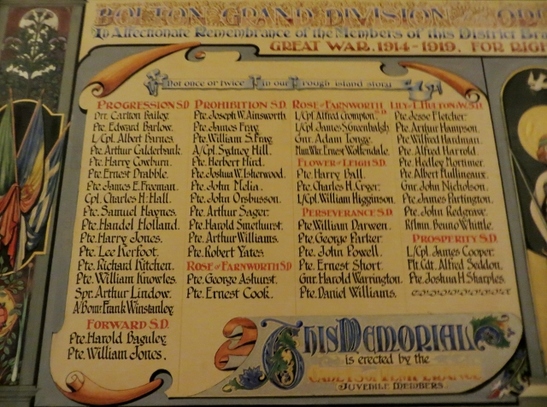 BOLTON GRAND DIVISION
In Affectionate Remembrance of the Members of this District
GREAT WAR. 1914-1919, FOR
Not once or twice in our rough island story
PROGRESSION S.D
Dvr. Carlton Bailey.
Pte. Edward Barlow.
L/Cpl. Albert Barnes.
Pte. Arthur Calderbank.
Pte. Harry Cowburn.
Pte. Ernest Drabble.
Pte. James E. Freeman.
Cpl. Charles H. Hall.
Pte. Samuel Haynes.
Pte. Handel Holland.
Pte. Harry Jones.
Pte. Lee Kerfoot.
Pte. Richard Kitchen.
Pte. William Knowles.
Spr. Arthur Lindow.
A/Bomr. Frank Winstanley.
FORWARD S.D.
Pte. Harold Baguley.
Pte. William Jones.
PROHIBITION S.D.
Pte. Joseph W. Ainsworth.
Pte. James Fray.
Pte. William S. Fray.
A/Cpl. Sydney Hill.
Pte. Herbert Hird.
Pte. Joshua W. Isherwood.
Pte. John Melia.
Pte. John Orsbusson.
Pte. Arthur Sager.
Pte. Harold Smethurst.
Pte. Arthur Williams.
Pte. Robert Yates.
ROSE OF FARNWORTH S.D
Pte. George Ashurst.
Pte. Ernest Cook.
ROSE OF FARNWORTH S.D
L/Cpl Alfred Crompton.
L/Cpl. James Greenhalgh.
Gnr. Adam Tonge.
Ernest Wolfendale.
FLOWER OF LEIGH S.D.
Pte. Harry Ball.
Pte. Charles H. Cryer.
L/Cpl. William Higginson.
PERSEVERANCE S.D
Pte. William Darwen.
Pte. George Parker.
Pte. John Powell.
Pte. Ernest Short.
Gnr. Harold Warrington.
Pte. Daniel Williams.
LILY L. HULTON S.D.
Pte. Jesse Fletcher.
Pte. Arthur Hampson.
Pte. Wilfred Hardman.
Pte. Alfred Harrold.
Pte. Hedley Mortimer.
Pte. Albert Mullineaux.
Gnr. John Nicholson.
Pte. James Partington.
Pte. John Redgrave.
Rflmn. Benno Whittle.
PROSPERITY S.D.
L/Cpl. James Cooper.
Flt. Cdt. Alfred Seddon.
Pte. Joshua H. Sharples.
THIS MEMORIAL
is erected by the
JUVENILE MEMBERS